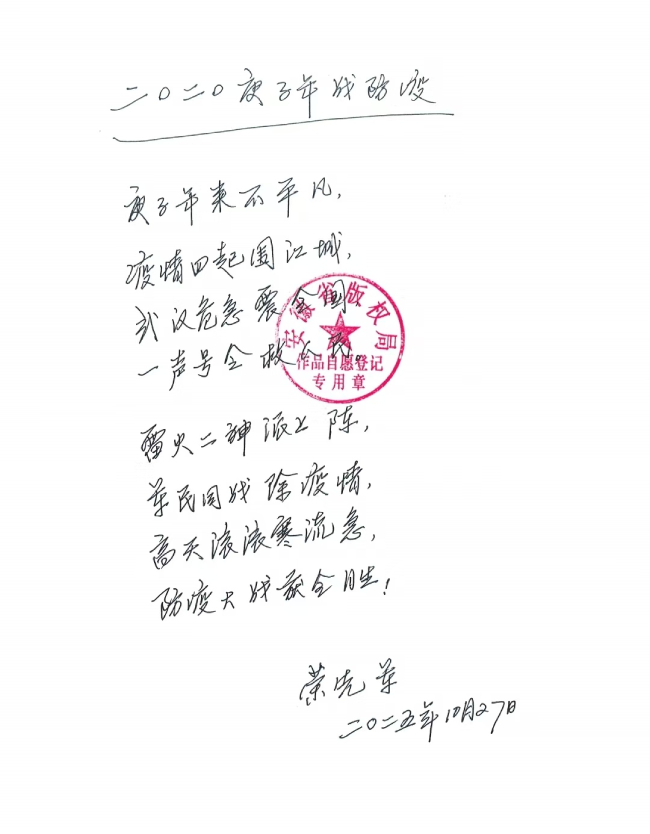 二〇二〇庚子年战防疫
庚子年来不平凡，
疫情四起围江城，
武汉危急震全国
一声号令救人民。
安徽省版权局
作品自愿登记
专用章
雷火二神派上阵，
军民同战除疫情，
高天滚滚寒流急，
防疫大战获全胜！
荣先军
二〇二五年10月27日